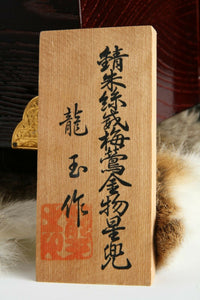 錆朱絲威梅鶯金物星兜
龍玉作